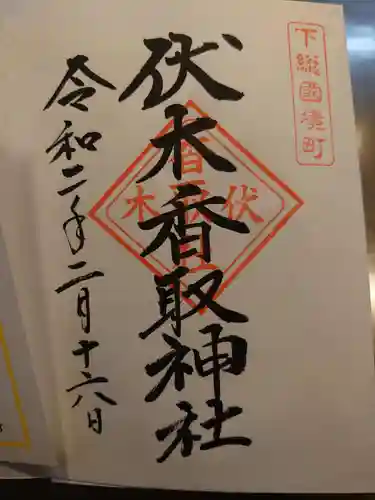 下総國境町
伏木香取神社
令和二年二月十六日
伏木
香取社